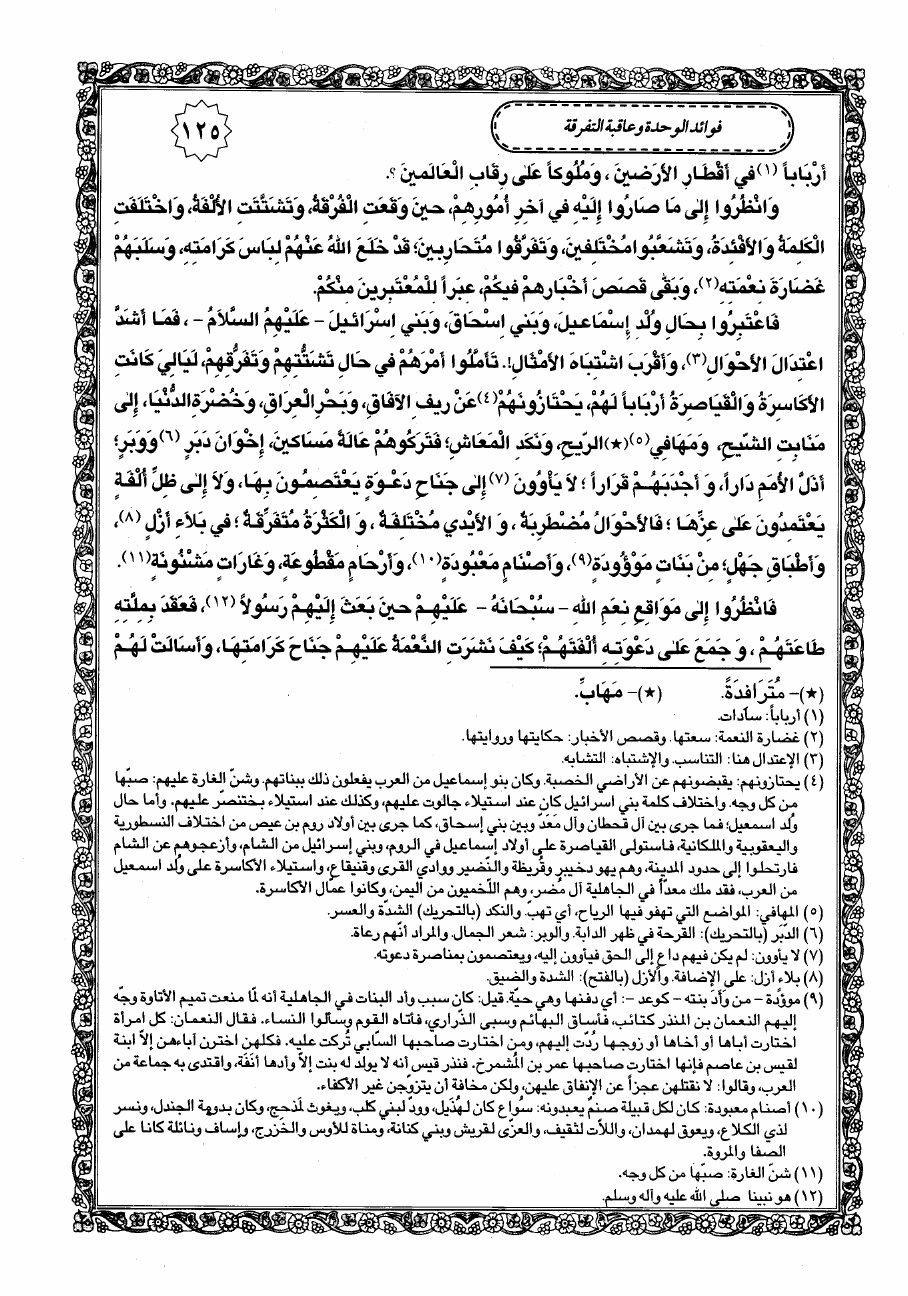 فوائد الوحدة وعاقبة التفرقة
١٢٥
أرْبَاباً (١) في أقْطَارِ الأرَضينَ، وَمُلُوكاً عَلى رِقَابِ الْعَالَمينَ؟.
وَانْظُرُوا إلى مَا صَارُوا إلَيْهِ في آخِرِ أُمُورِهِمْ، حينَ وَقَعَتِ الْفُرْقَةُ، وَتَشَتَّتَتِ الألْفَةُ، وَاخْتَلَفَتِ
الْكَلِمَةُ وَالأفْئِدَةُ، وَتَشَعَّبُوا مُخْتَلِفينَ، وَتَفَرَّقُوا مُتَحَارِبينَ؛ قَدْ خَلَعَ اللهُ عَنْهُمْ لِبَاسَ كَرَامَتِهِ، وَسَلَبَهُمْ
غَضَارَةَ نِعْمَتِهِ(٢)، وَبَقَى قَصَصَ أخْبَارِهِمْ فيكُمْ، عِبَراً لِلْمُعْتَبِرينَ مِنْكُمْ.
فَاعْتَبِرُوا بِحَالِ وُلْدِ إسْمَاعيلَ، وَبَني إسْحَاقَ، وَبَني إسْرَائيلَ - عَلَيْهِمُ السَّلاَمُ - ، فَمَا أشَدَّ
اعْتِدَالَ الأحْوَالِ(٣)، وَأقْرَبَ اشْتِبَاهَ الأمْثَالِ!. تَأمَّلُوا أمْرَهُمْ في حَالِ تَشَتُّتِهِمْ وَتَفَرُّقِهِمْ، لَيَالِيَ كَانَتِ
الأكَاسِرَةُ وَالْقَيَاصِرَةُ أرْبَاباً لَهُمْ، يَحْتَازُونَهُمْ(٤) عَنْ ريفِ الآفَاقِ، وَبَحْرِ الْعِرَاقِ، وَخُضْرَةِ الدُّنْيَا، إلى
مَنَابِتِ الشّيحِ، وَمَهَافِي(٥)(★) الرّيحِ، وَنَكَدِ الْمَعَاشِ؛ فَتَرَكُوهُمْ عَالَةً مَسَاكينَ، إخْوَانَ دَبَرٍ (٦) وَوَبَرٍ؛
أذَلَّ الأُمَمِ دَاراً، وَ أجْدَبَهُمْ قَرَاراً ؛ لاَ يَأْوُونَ (٧) إلى جَنَاحِ دَعْوَةٍ يَعْتَصِمُونَ بِهَا، وَلاَ إلى ظِلِّ ألْفَةٍ
يَعْتَمِدُونَ عَلى عِزِّهَا ؛ فَالأحْوَالُ مُضْطَرِبَةٌ ، وَ الأيْدي مُخْتَلِفَةٌ ، وَ الْكَثْرَةُ مُتَفَرِّقَةٌ ؛ في بَلاَءِ أزْلٍ (٨)،
وَأطْبَاقِ جَهْلٍ؛ مِنْ بَنَاتٍ مَوْؤُودَةٍ(٩)، وَأصْنَامٍ مَعْبُودَةٍ(١٠)، وَأرْحَامٍ مَقْطُوعَةٍ، وَغَارَاتٍ مَشْنُونَةٍ(١١).
فَانْظُرُوا إلى مَوَاقِعِ نِعَمِ اللهِ - سُبْحَانَهُ - عَلَيْهِمْ حينَ بَعَثَ إلَيْهِمْ رَسُولاً (١٢)، فَعَقَدَ بِمِلَّتِهِ
طَاعَتَهُمْ ، وَ جَمَعَ عَلى دَعْوَتِهِ ألْفَتَهُمْ؛ كَيْفَ نَشَرَتِ النِّعْمَةُ عَلَيْهِمْ جَنَاحَ كَرَامَتِهَا، وَأسَالَتْ لَهُمْ
(★)- مُتَرَافِدَةً. (★)- مَهَابِّ.
(١) أرباباً: سادات.
(٢) غضارة النعمة: سعتها. وقصص الأخبار: حكايتها وروايتها.
(٣) الإعتدال هنا: التناسب. والإشتباه: التشابه.
(٤) يحتازونهم: يقبضونهم عن الأراضي الخصبة. وكان بنو إسماعيل من العرب يفعلون ذلك ببناتهم. وشنّ الغارة عليهم: صبّها
من كل وجه. واختلاف كلمة بني اسرائيل كان عند استيلاء جالوت عليهم، وكذلك عند استيلاء بختنصّر عليهم. وأما حال
وُلد اسمعيل؛ فما جرى بين آل قحطان وآل مَعَدّ وبين بني إسحاق، كما جرى بين أولاد روم بن عيص من اختلاف النسطورية
واليعقوبية والملكانية، فاستولى القياصرة على أولاد إسماعيل في الروم، وبني إسرائيل من الشام، وأزعجوهم عن الشام
فارتحلوا إلى حدود المدينة، وهم يهود خيبر وقُريظة والنّضير ووادي القرى وقنيقاع، واستيلاء الأكاسرة على وُلد اسمعيل
من العرب، فقد ملك معدّاً في الجاهلية آل مُضر، وهم اللّخميون من اليمن، وكانوا عمّال الأكاسرة.
(٥) المهافي: المواضع التي تهفو فيها الرياح، أي تهبّ. والنكد (بالتحريك) الشدّة والعسر.
(٦) الدَّبَر (بالتحريك): القرحة في ظهر الدابة. والوبر: شعر الجمال. والمراد أنّهم رعاة.
(٧) لا يأوون: لم يكن فيهم داعٍ إلى الحق فيأوون إليه، ويعتصمون بمناصرة دعوته.
(٨) بلاء أزل: على الإضافة. والأزل (بالفتح): الشدة والضيق.
(٩) موؤدة - من وأدَ بنته - كوعد -: أي دفنها وهي حيّة. قيل: كان سبب وأد البنات في الجاهلية أنه لمّا منعت تميم الأتاوة وجّه
إليهم النعمان بن المنذر كتائب، فأساق البهائم وسبى الذّراري، فأتاه القوم وسألوا النساء. فقال النعمان: كل امرأة
اختارت أباها أو أخاها أو زوجها رُدّت إليهم، ومن اختارت صاحبها السّابي تُركت عليه. فكلهن اخترن أباءهن إلاّ ابنة
لقيس بن عاصم فإنها اختارت صاحبها عمر بن المُشمرخ. فنذر قيس أنه لا يولد له بنت إلاّ وأدها أنَفَة، واقتدى به جماعة من
العرب، وقالوا: لا نقتلهن عجزاً عن الإنفاق عليهن، ولكن مخافة أن يتزوجن غير الأكفاء.
(١٠) أصنام معبودة: كان لكل قبيلة صنم يعبدونه: سُواع كان لهُذيل، وودّ لبني كلب، ويغوث لمذحج، وكان بدومة الجندل، ونسر
لذي الكلاع، ويعوق لهمدان، واللاّت لثقيف، والعزّى لقريش وبني كنانة، ومناة للأوس والخزرج، وإساف ونائلة كانا على
الصفا والمروة.
(١١) شنّ الغارة: صبّها من كل وجه.
(١٢) هو نبينا صلى الله عليه وآله وسلم.